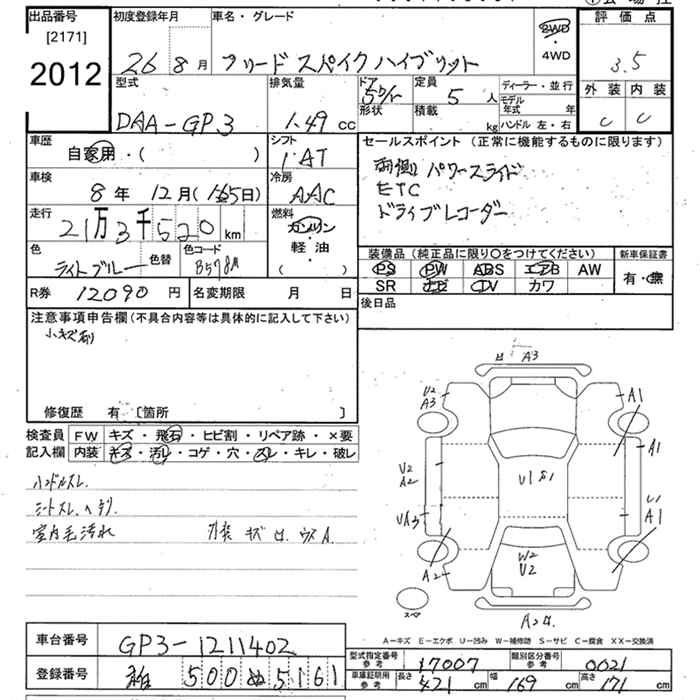 出品番号
[2171]
2012
初度登録年月
26 8月
車名・グレード
フリード スパイク ハイブリット
2WD
・
4WD
評価点
3.5
外装 内装
C C
型式
DAA-GP3
排気量
1.49 cc
ドア
形状
定員
5 人
積載
kg
ディーラー・並行
モデル
年式 年
ハンドル 左・右
車歴
自家用・( )
シフト
AT
セールスポイント(正常に機能するものに限ります)
両側 パワースライド
ETC
ドライブレコーダー
車検
8年 12月(
日)
冷房
AAC
走行
21万3千520 km
燃料
ガソリン
・
軽・油
( )
色
ライトブルー
色替
色コード
B578M
装備品(純正品に限り〇をつけてください)
PS PW ABS エアB AW
SR ナビ TV カワ
新車保証書
有・無
R券 12090円
名変期限 月 日
後日品
注意事項申告欄(不具合内容等は具体的に記入して下さい)
小キズ有
修復歴 有 [箇所 ]
検査員
記入欄
FW キズ・飛石・ヒビ割・リペア跡・×要
内装 キズ・汚レ・コゲ・穴・スレ・キレ・破レ
ハンドルスレ.
シートスレ.ヘタリ.
室内毛汚れ
A3
U2
A3
A1
A1
U2
A2
U1
UA3
U1
A1
W2
U2
A2
スペア
A=キズ E=エクボ U=凹み W=補修跡 S=サビ C=腐食 XX=交換済
車台番号
GP3-1211402
登録番号
500 ぬ 5161
型式指定番号
参考
17007
類別区分番号
参考
0021
車庫証明用
参考
長さ
421 cm
幅
169 cm
高さ
171 cm